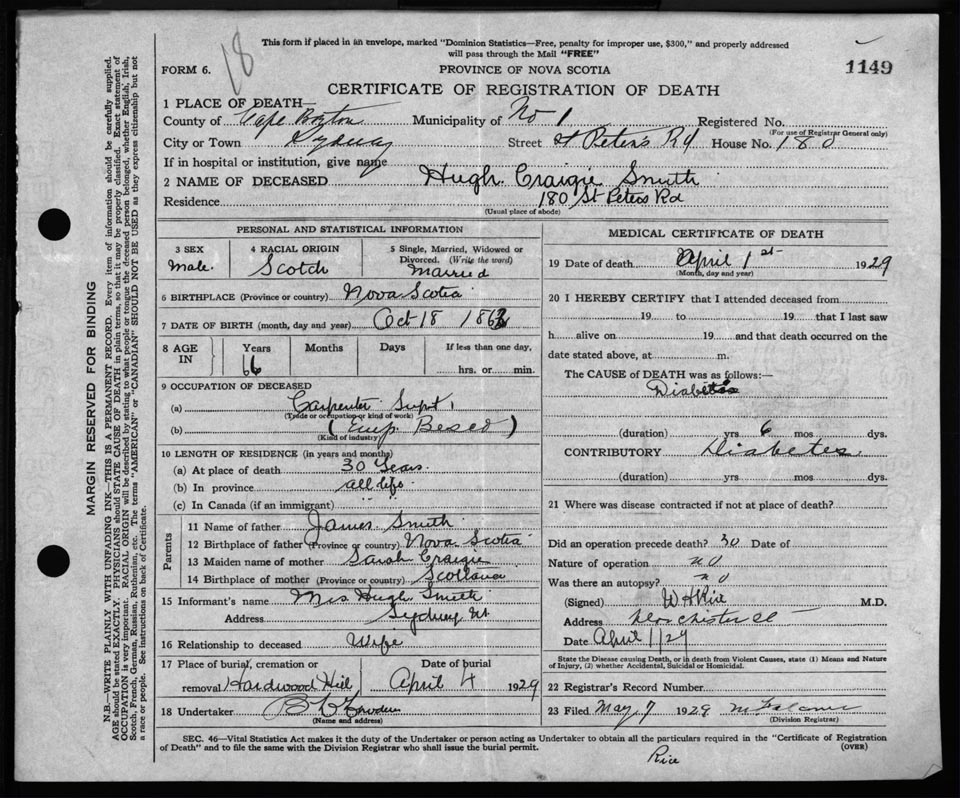 18
This form if placed in an envelope, marked "Dominion Statistics—Free, penalty for improper use, $300," and properly addressed
will pass through the Mail "FREE"
FORM 6. PROVINCE OF NOVA SCOTIA 1149
CERTIFICATE OF REGISTRATION OF DEATH
1 PLACE OF DEATH—
County of Cape Breton Municipality of No 1 Registered No.
(For use of Registrar General only)
City or Town Sydney Street St Peters Rd House No. 180
If in hospital or institution, give name
2 NAME OF DECEASED Hugh Craigie Smith
Residence 180 St Peters Rd
(Usual place of abode)
PERSONAL AND STATISTICAL INFORMATION
3 SEX Male.
4 RACIAL ORIGIN Scotch
5 Single, Married, Widowed or Divorced. (Write the word) Married
6 BIRTHPLACE (Province or country) Nova Scotia
7 DATE OF BIRTH (month, day and year) Oct 18 186
8 AGE IN Years 66 Months Days If less than one day. hrs. or min.
9 OCCUPATION OF DECEASED
(a) Carpenter Supt.
(Trade or occupation or kind of work)
(b) (Emp. Besco)
(Kind of industry)
10 LENGTH OF RESIDENCE (in years and months)
(a) At place of death 30 Years.
(b) In province all life
(c) In Canada (if an immigrant) " "
Parents
11 Name of father James Smith
12 Birthplace of father (Province or country) Nova Scotia
13 Maiden name of mother Sarah Craigie
14 Birthplace of mother (Province or country) Scotland
15 Informant's name Mrs Hugh Smith
Address Sydney
16 Relationship to deceased Wife
17 Place of burial, cremation or removal Hardwood Hill Date of burial April 4 1929
18 Undertaker
(Name and address)
MEDICAL CERTIFICATE OF DEATH
19 Date of death April 1st 1929
(Month, day and year)
20 I HEREBY CERTIFY that I attended deceased from
19 to 19 that I last saw
h alive on 19 and that death occurred on the
date stated above, at m.
The CAUSE of DEATH was as follows:—
Diabetes
(duration) yrs 6 mos dys.
CONTRIBUTORY Diabetes
(duration) yrs mos dys.
21 Where was disease contracted if not at place of death?
Did an operation precede death? Date of
Nature of operation no
Was there an autopsy? no
(Signed) W H Rice M.D.
Address
Date April 1/29
State the Disease causing Death, or in death from Violent Causes, state (1) Means and Nature
of Injury, (2) whether Accidental, Suicidal or Homicidal.
22 Registrar's Record Number
23 Filed May 7 1929
(Division Registrar)
SEC. 46—Vital Statistics Act makes it the duty of the Undertaker or person acting as Undertaker to obtain all the particulars required in the "Certificate of Registration
of Death" and to file the same with the Division Registrar who shall issue the burial permit. (OVER)
Rice
MARGIN RESERVED FOR BINDING
N.B.—WRITE PLAINLY WITH UNFADING INK—THIS IS A PERMANENT RECORD. Every item of information should be carefully supplied.
AGE should be stated EXACTLY. PHYSICIANS should STATE CAUSE OF DEATH in plain terms, so that it may be properly classified. Exact statement of
OCCUPATION is very important. RACIAL ORIGIN will be described by stating to what people or tongue the deceased person belonged, whether English, Irish,
Scotch, French, German, Russian, Ruthenian, etc. The terms "AMERICAN" or "CANADIAN" SHOULD NOT BE USED as they express citizenship but not
a race or people. See instructions on back of Certificate.